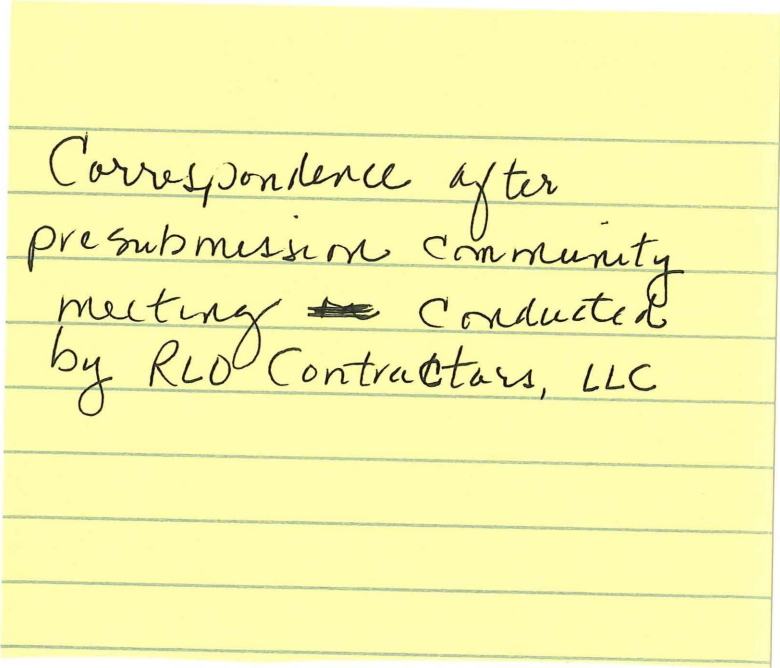 Correspondence after
presubmission community
meeting conducted
by RLO Contractors, LLC